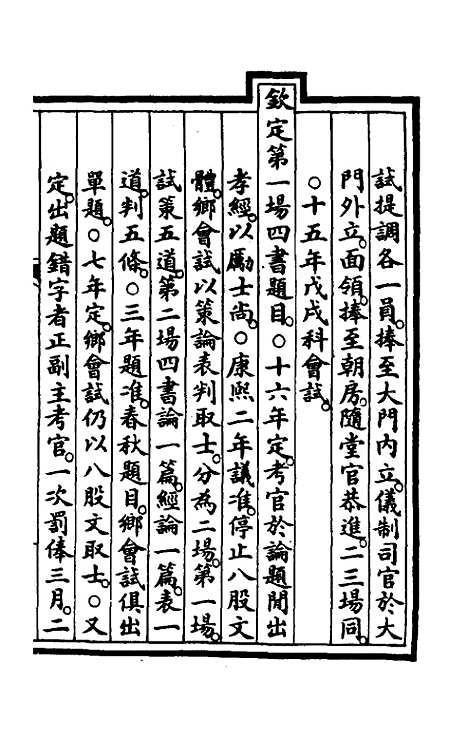 試提調各一員捧至大門内立儀制司官於大
門外立面領捧至朝房隨堂官恭進二三場同
○十五年戊戌科會試
欽定第一場四書題目○十六年定考官於論題閒出
孝經以勵士尚○康熙二年議准停止八股文
體鄉會試以策論表判取士分為二場第一場
試策五道第二場四書論一篇經論一篇表一
道判五條○三年題准春秋題目鄉會試俱出
單題○七年定鄉會試仍以八股文取士○又
定出題錯字者正副主考官一次罰俸三月二